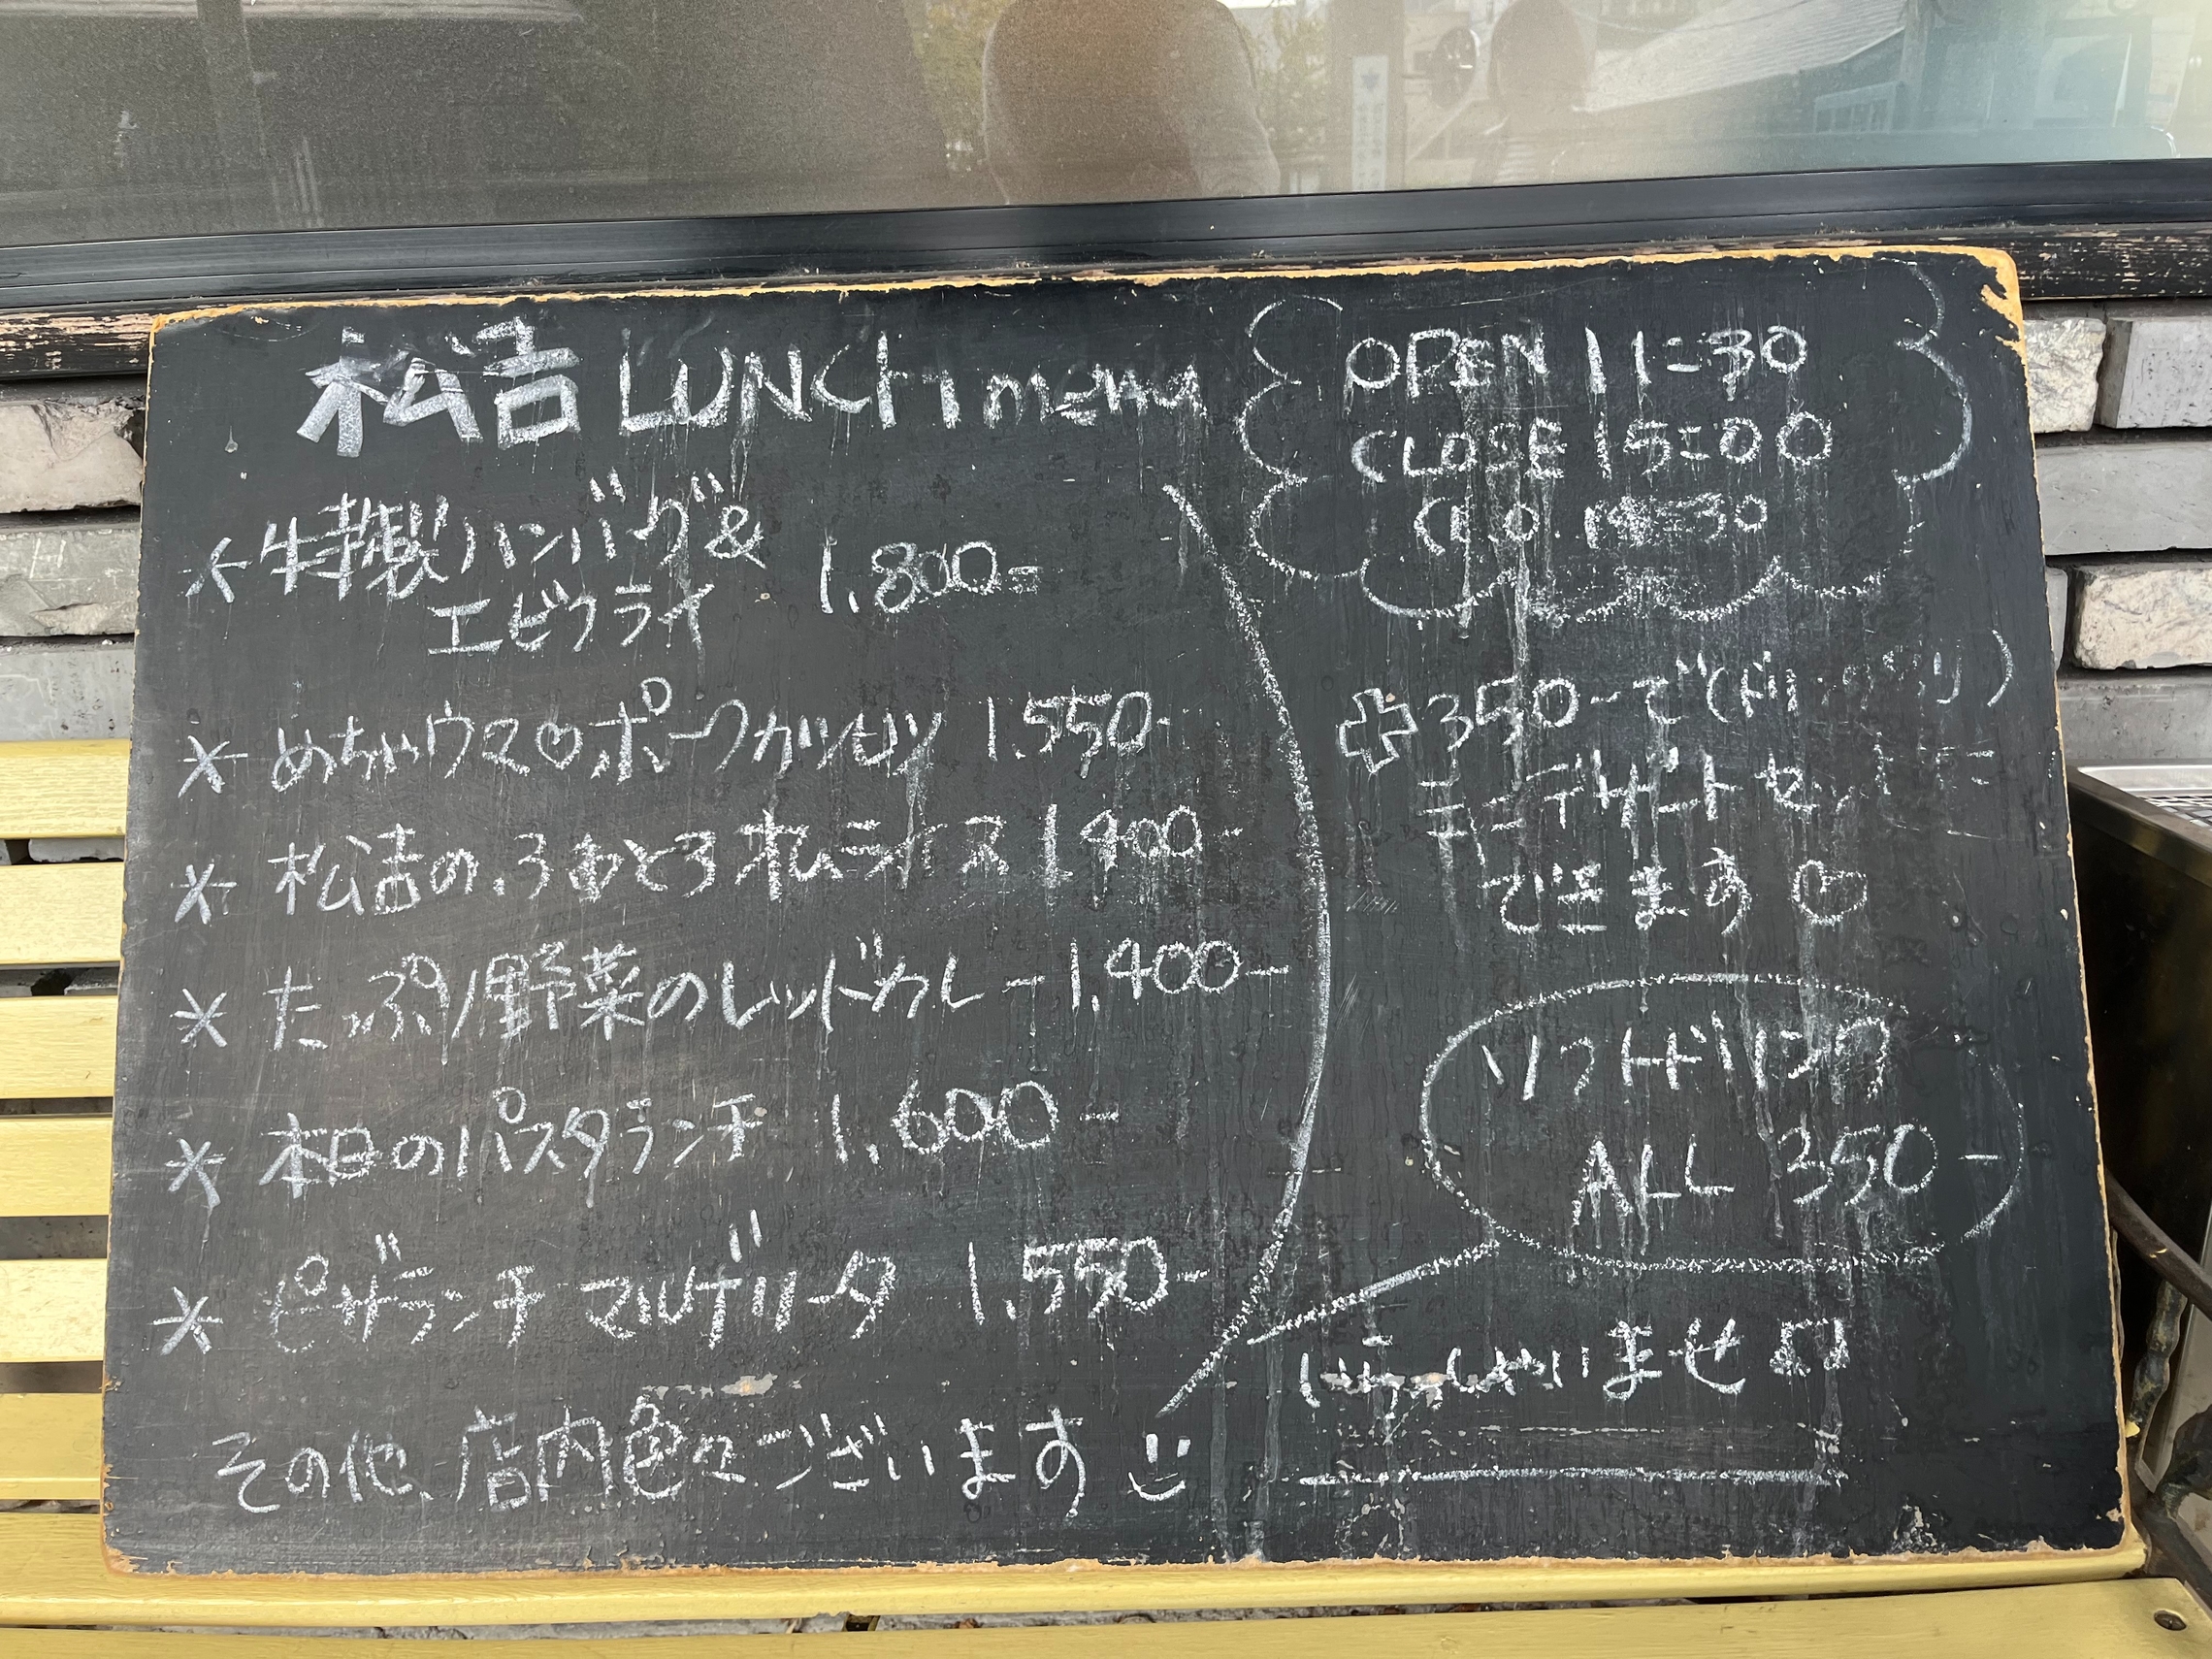 松吉 LUNCH menu
* 特製ハンバーグ&
エビフライ 1.800=
* めちゃウマ♡ポークカツセット 1.550-
* 松吉のふわとろオムライス 1.400-
* たっぷり野菜のレッドカレー 1.400-
* 本日のパスタランチ 1.600-
* ピザランチ マルゲリータ 1.550-
その他、店内色々ございます
OPEN 11:30
CLOSE 15:00
(L.O. 14:30
+350-で(
ミニデザートセ
できます♡
ソフトドリンク
ALL 350-
いらっしゃいませ